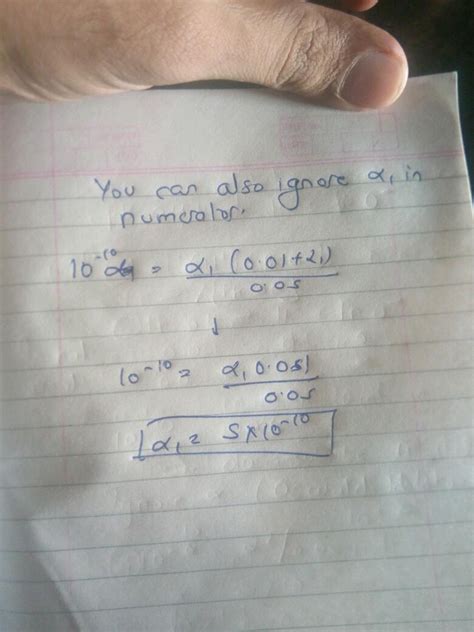 You can also ignore α₁ in
numerator.
10⁻¹⁰ = α₁ (0.01+α₁)
0.05
↓
10⁻¹⁰ = α₁ 0.01
0.05
α₁ = 5×10⁻¹⁰